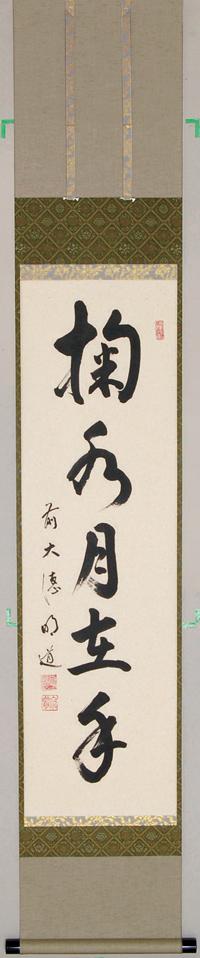 掬水月在手
前大徳明道